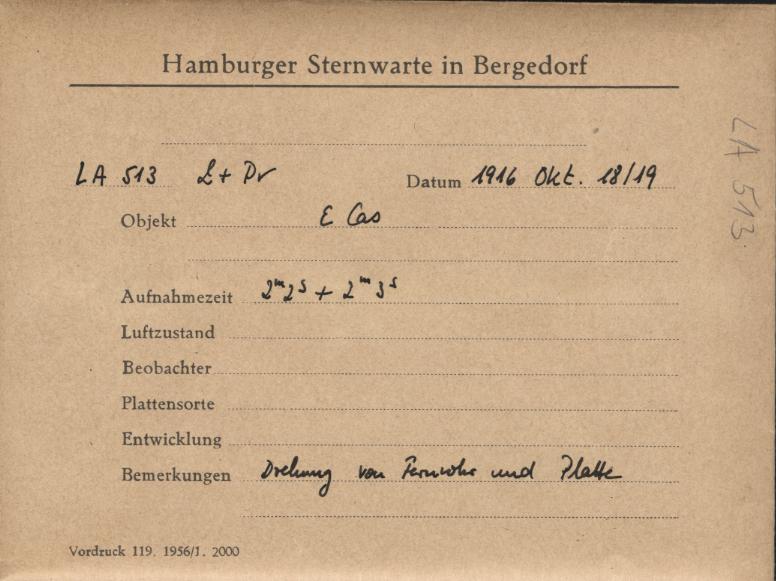 Hamburger Sternwarte in Bergedorf
LA 513 L + Pr Datum 1916 Okt. 18/19
Objekt ε Cas
Aufnahmezeit 2ᵐ2ˢ + 2ᵐ3ˢ
Luftzustand
Beobachter
Plattensorte
Entwicklung
Bemerkungen Drehung von Fernrohr und Platte
Vordruck 119. 1956/1. 2000
LA 513